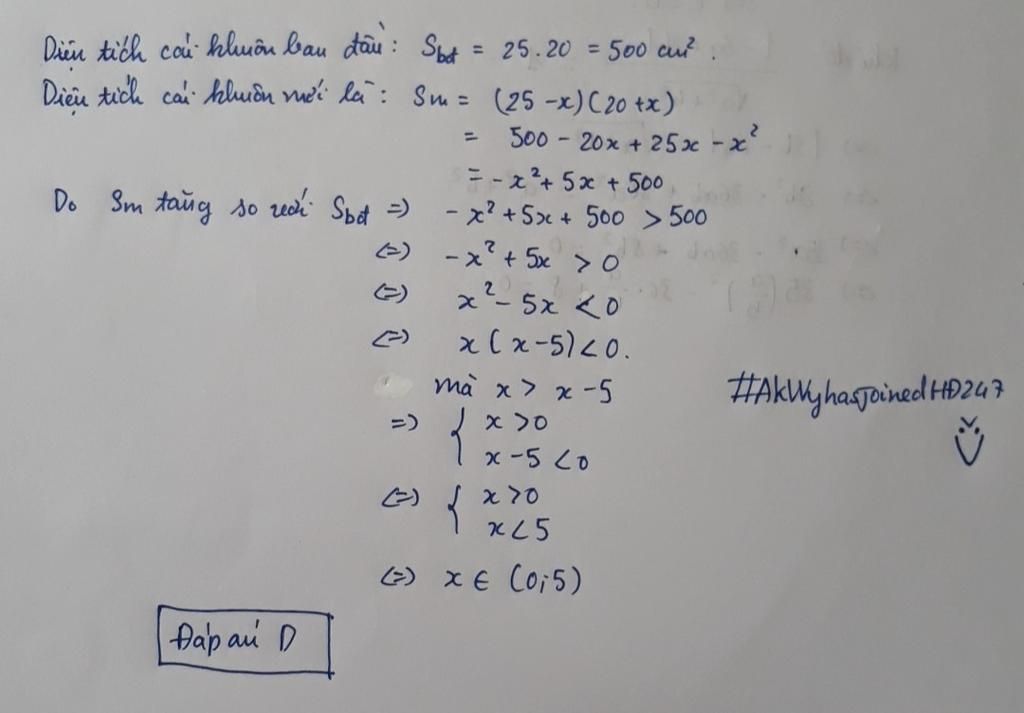 Diện tích cái khuôn ban đầu: Sbđ = 25.20 = 500 cm².
Diện tích cái khuôn mới là: Sm = (25 - x)(20 + x)
= 500 - 20x + 25x - x²
= -x² + 5x + 500
Do Sm tăng so với Sbđ => -x² + 5x + 500 > 500
<=> -x² + 5x > 0
<=> x² - 5x < 0
<=> x(x-5) < 0.
mà x > x - 5
=> { x > 0
x - 5 < 0
<=> { x > 0
x < 5
<=> x ∈ (0;5)
#AkWyhasjoinedHD247
Đáp án D